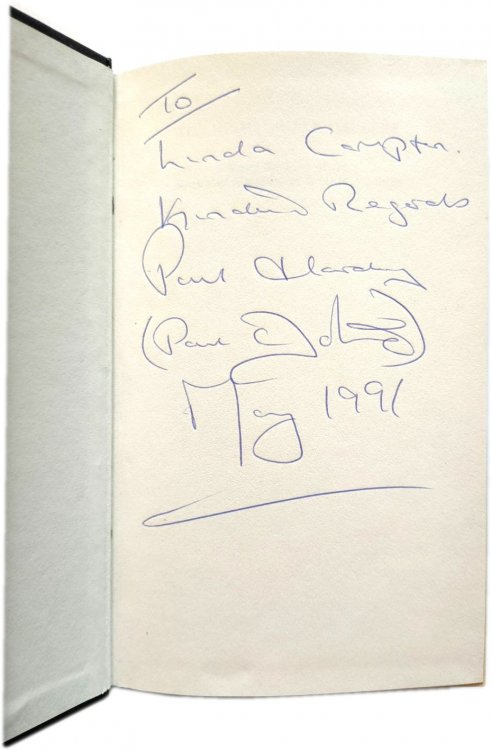 To
Linda Compton.
Kindest Regards
Paul Harding
(Paul Doherty)
May 1991